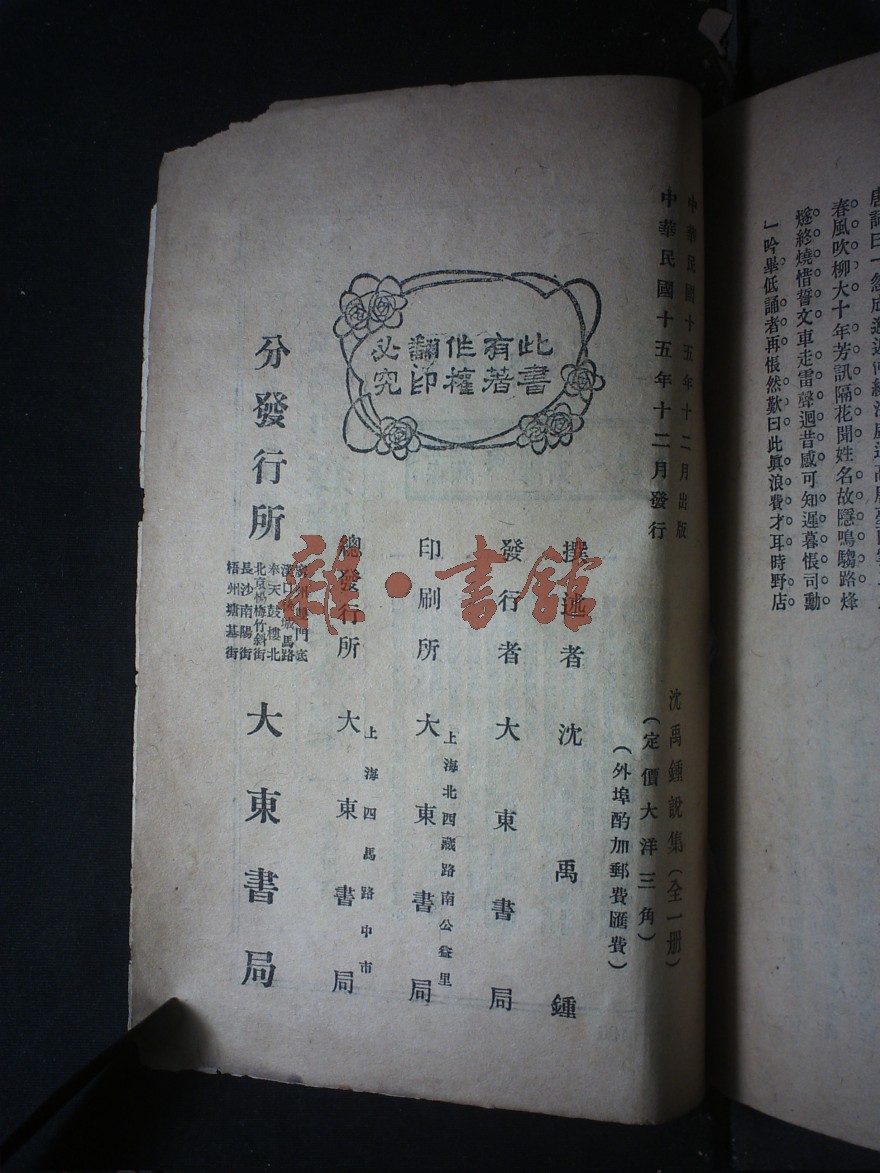 春風吹柳大十年芳訊隔花聞姓名故隱鳴騶路烽
燧終燒惜誓文車走雷聲迴昔感可知遲暮悵司勳
」吟畢低誦者再悵然歎曰此眞浪費才耳時野店
中華民國十五年十二月出版
中華民國十五年十二月發行
沈禹鍾說集（全一册）
（定價大洋三角）
（外埠酌加郵費匯費）
此書
有著
作權
翻印
必究
撰述者 沈禹鍾
發行者 大東書局
上海北西藏路南公益里
印刷所 大東書局
上海四馬路中市
總發行所 大東書局
奉天鼓樓北
北京楊梅竹斜街
長沙南陽街
梧州塘基街
分發行所 大東書局
雜·書館